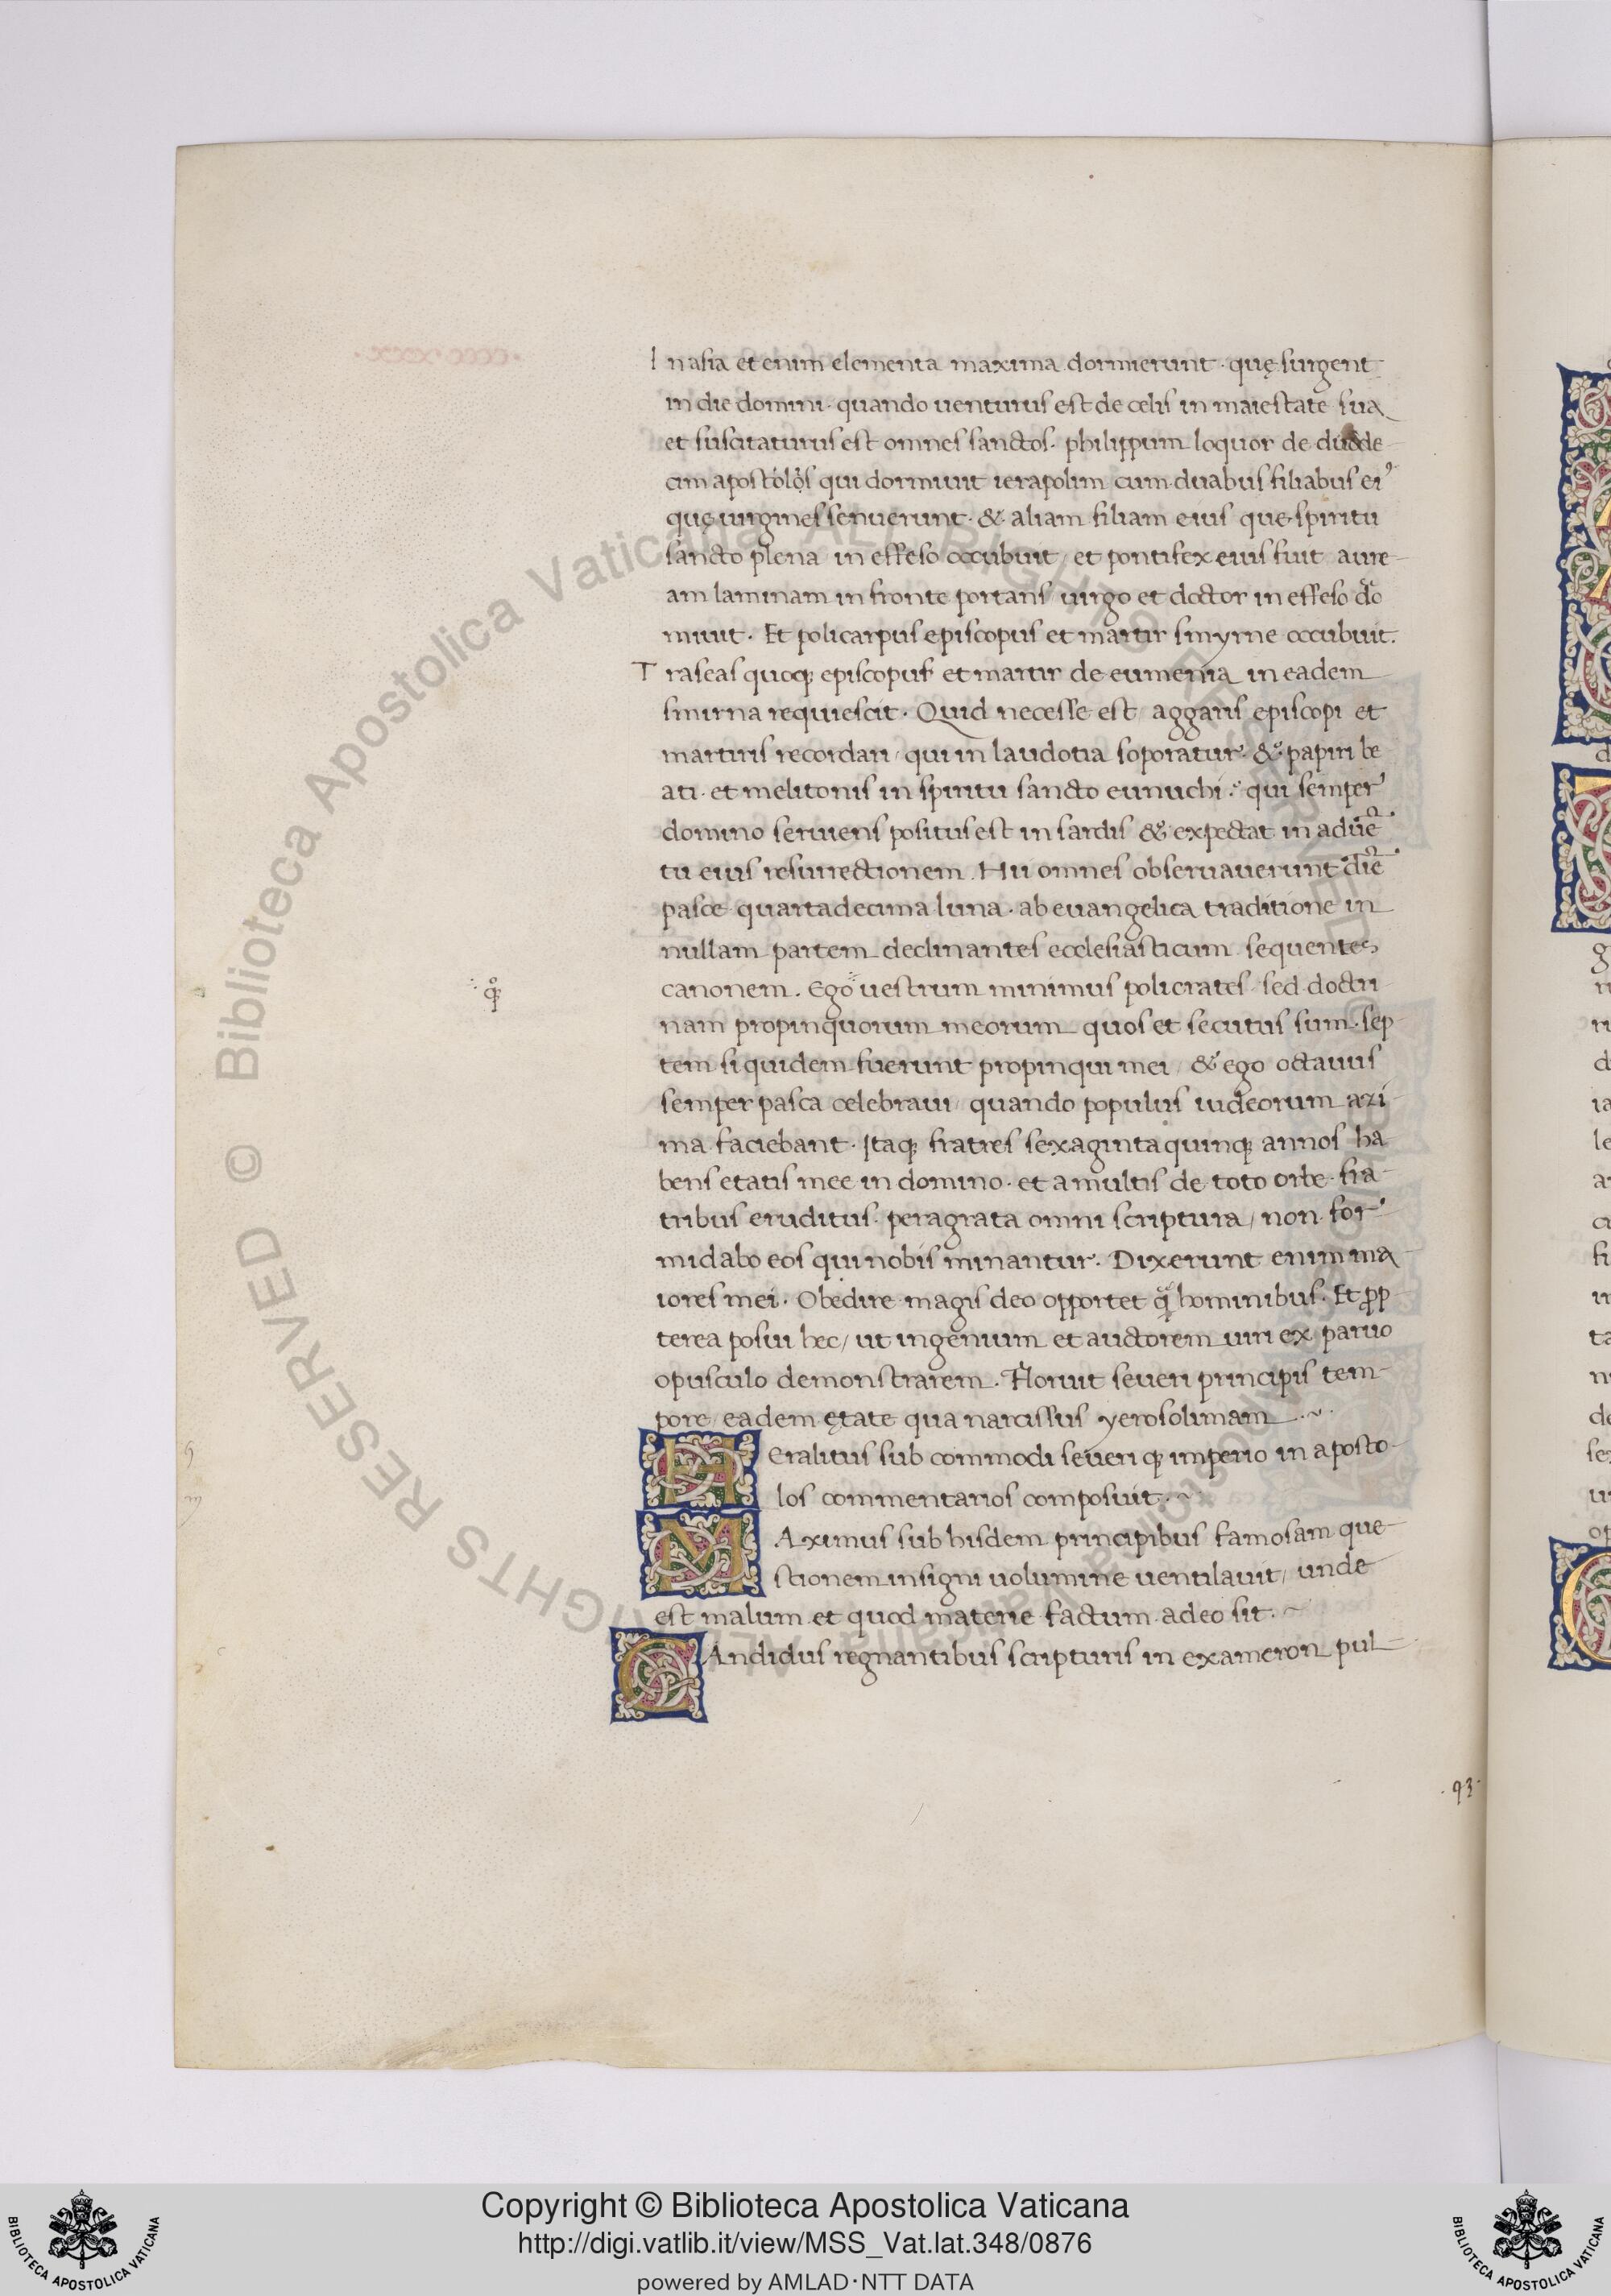 In asia et enim elementa maxima dormierunt · quę surgent
in die domini · quando uenturus est de celis in maiestate sua
et suscitaturus est omnes sanctos · philippum loquor de duode
cim apostolos qui dormiuit ierapolim cum duabus filiabus eiꝰ
quę uirgines senuerunt · & aliam filiam eius que spiritu
sancto plena in effeso occubuit / et pontifex eius fuit aure-
am laminam in fronte portans / uirgo et doctor in effeso do
miuit · Et policarpus episcopus et martir smyrne occubuit.
Traseas quoqꝫ episcopus et martir de eumenia in eadem
smirna requiescit · Quid necesse est / aggaris episcopi et
martiris recordari / qui in laudotia soporatur · & papiri be
ati · et melitonis in spiritu sancto eunuchi · qui semper
domino seruiens positus est in sardis & expectat in aduē
tu eius resurrectionem · Hii omnes obseruauerunt diē
pasce quartadecima luna · ab euangelica traditione in
nullam partem declinantes ecclesiasticum sequentes
canonem · Ego uestrum minimus policrates sed doctri
nam propinquorum meorum quos et secutus sum · sep
tem siquidem fuerunt propinqui mei / & ego octauus
semper pasca celebraui / quando populus iudeorum azi-
ma faciebant · Itaqꝫ fratres sexaginta quinqꝫ annos ha
bens etatis mee in domino · et a multis de toto orbe fra-
tribus eruditus · peragrata omni scriptura / non for
midabo eos qui nobis minantur · Dixerunt enim ma
iores mei · Obedire magis deo opportet q̃ hominibus · Et ꝓp
terea posui hec / ut ingenium et auctorem uiri ex paruo
opusculo demonstrarem · Floruit seueri principis tem-
pore / eadem ętate qua narcissus yerosolimam · ~ ·
Heralitus sub commodi seueri qꝫ imperio in aposto-
los commentarios composuit · ~
MAximus sub hisdem principibus famosam que-
stionem insigni uolumine uentilauit / unde
est malum et quod materie factum adeo sit · ~
CAndidus regnantibus scripturis in exameron pul-
· 93 ·
Copyright © Biblioteca Apostolica Vaticana
http://digi.vatlib.it/view/MSS_Vat.lat.348/0876
powered by AMLAD · NTT DATA
BIBLIOTECA APOSTOLICA VATICANA
BIBLIOTECA APOSTOLICA VATICANA